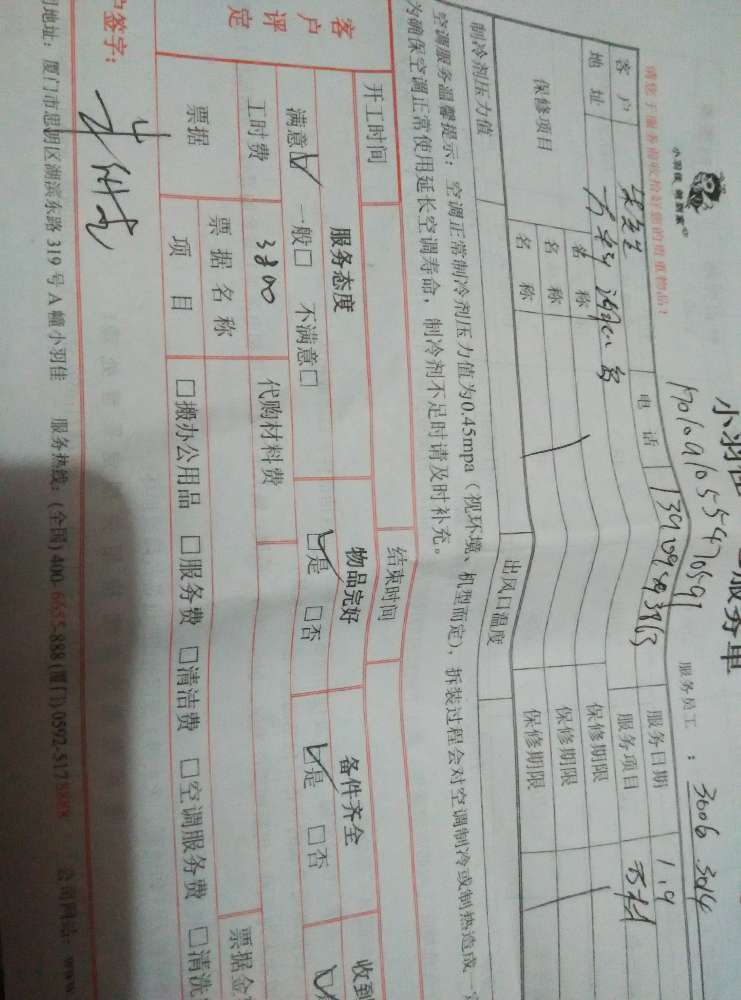 小羽佳 做到家
小羽佳 服务单
17010a105547059
服务员工：3006 3014
请您于服务前收拾好您的贵重物品！
客户 宋先生 电话 服务日期 1.9
地址 湖心岛 服务项目
保修项目 名称 保修期限
名称 保修期限
名称 保修期限
制冷剂压力值 出风口温度
空调服务温馨提示：空调正常制冷剂压力值为0.45mpa（视环境、机型而定），拆装过程会对空调制冷或制热造成一定
为确保空调正常使用延长空调寿命，制冷剂不足时请及时补充。
开工时间 结束时间
客户评定 服务态度 物品完好 备件齐全 收到
满意☑ 一般□ 不满意□ ☑是 □否 ☑是 □否
工时费 3800 代购材料费
票据 票据名称 票据金
项目 □搬办公用品 □服务费 □清洁费 □空调服务费 □清洗
户签字：
司地址：厦门市思明区湖滨东路319号A幢小羽佳 服务热线：(全国)400-6655-888(厦门)0592-5175888 公司网站：www